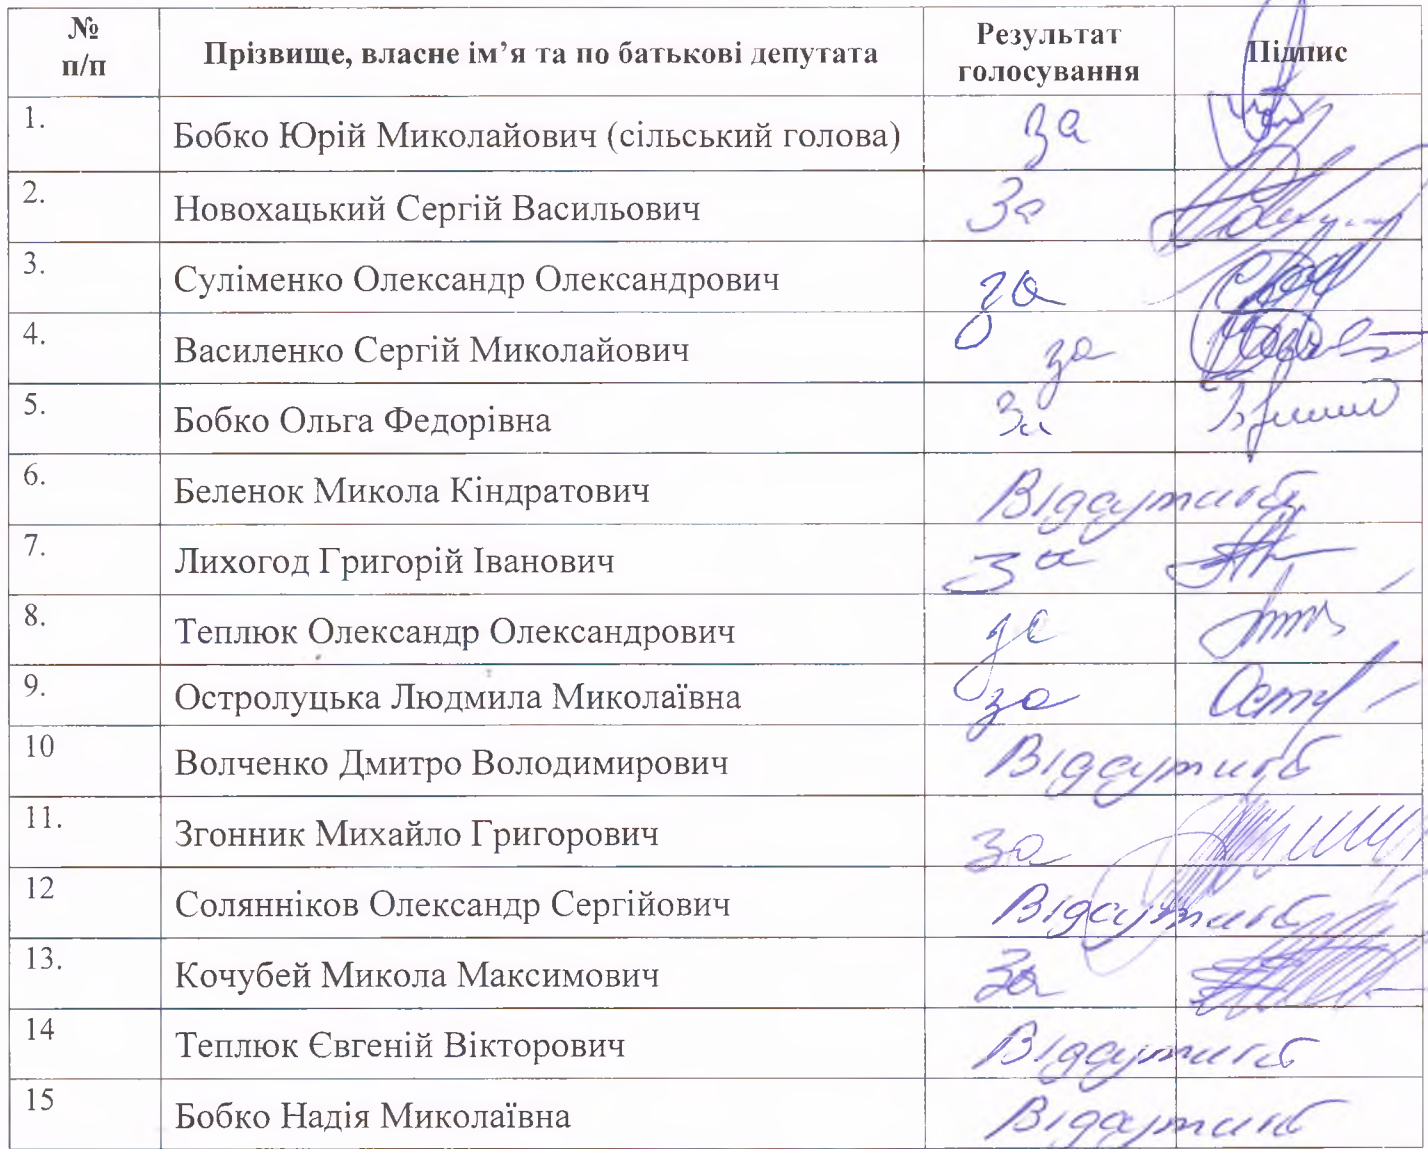 № п/п Прізвище, власне ім’я та по батькові депутата Результат голосування Підпис
1. Бобко Юрій Миколайович (сільський голова) за
2. Новохацький Сергій Васильович За
3. Суліменко Олександр Олександрович за
4. Василенко Сергій Миколайович за
5. Бобко Ольга Федорівна За
6. Беленок Микола Кіндратович Відсутній
7. Лихогод Григорій Іванович За
8. Теплюк Олександр Олександрович за
9. Остролуцька Людмила Миколаївна за
10 Волченко Дмитро Володимирович Відсутній
11. Згонник Михайло Григорович за
12 Солянніков Олександр Сергійович Відсутній
13. Кочубей Микола Максимович За
14 Теплюк Євгеній Вікторович Відсутній
15 Бобко Надія Миколаївна